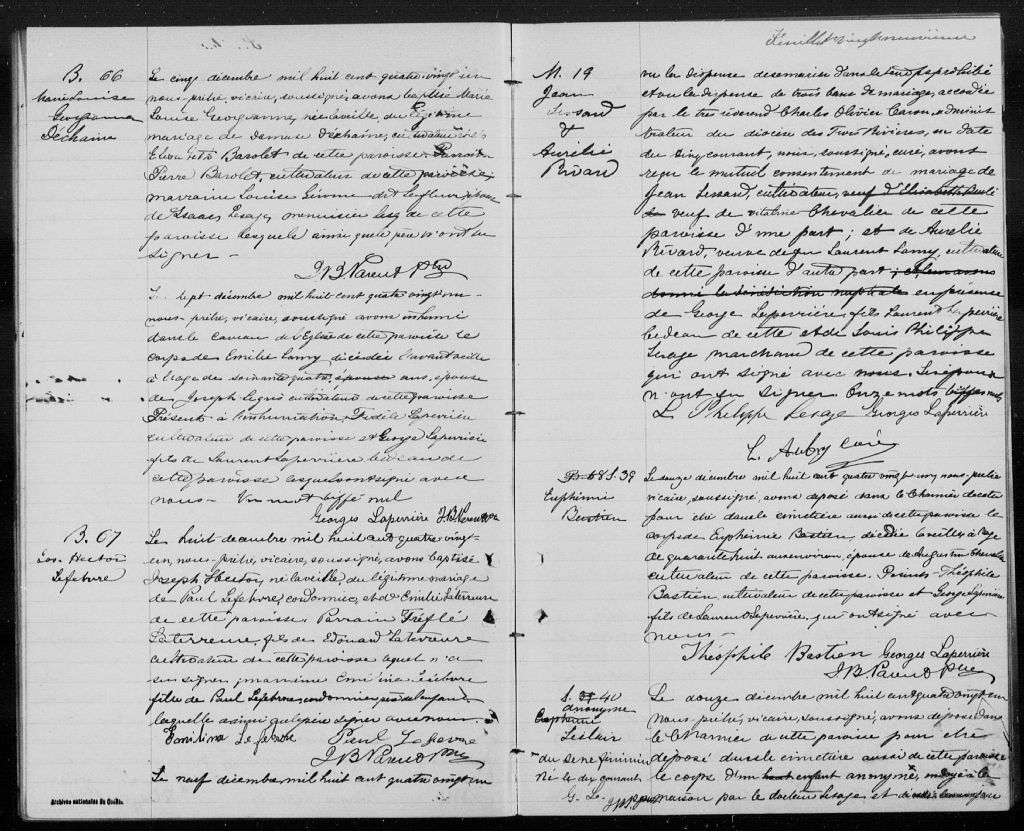 B. 66
Marie Louise
Georgianna
Déchaine
Le cinq décembre mil huit cent quatre-vingt un
nous prêtre, vicaire, soussigné, avons baptisé Marie
Louise Georgianna, née la veille, du légitime
mariage de Damase Déchaine, cultivateur et d'
Barolet de cette paroisse. Parrain
Pierre Barolet, cultivateur de cette paroisse,
marraine Louise dit Lafleur épouse
de Isaac Lesage, menuisier de cette
paroisse lesquels ainsi que le père n'ont su
signer —
J.B. N. Parent Ptre
Le sept décembre mil huit cent quatre vingt un
nous prêtre, vicaire, soussigné avons inhumé
dans le caveau de l'Eglise de cette paroisse le
corps de Emilie Lamy décédée l'avant veille
à l'age de soixante quatre épouse ans, épouse
de Joseph cultivateur de cette paroisse
Présent à l'inhumation Fidèle Laperrière
cultivateur de cette paroisse et George Laperrière
fils de Laurent Laperrière bedeau de
cette paroisse lesquels ont signé avec
nous — Un mot biffé nul
Georges Laperrière J.B. N. Parent Ptre
B. 67
Jos. Hector
Lefebvre
Le huit décembre mil huit cent quatre vingt-
un, nous prêtre, vicaire, soussigné, avons baptisé
Joseph Hector, né la veille, du légitime mariage
de Paul Lefebvre, cordonnier, et de Emilie Laterreur
de cette paroisse. Parrain Trefflé
Laterreur, fils de Edouard Laterreur
cultivateur de cette paroisse lequel n'a
su signer, marraine Lefebvre
fille de Paul Lefebvre cordonnier père de l'enfant
laquelle ainsi que le père signé avec nous.
Emilina Lefebvre Paul Lefebvre
J.B. N. Parent Ptre
Le neuf décembre mil huit cent quatre vingt un
Archives nationales du Québec
Feuillet vingt neuvième
M. 19
Jean
Lessard
&
Aurélie
Rivard
vu la dispense de mariage dans le temps prohibé
et vu la dispense de trois bans de mariage, accordée
par le très révérend Charles Olivier Caron, administ-
trateur du diocèse des Trois Rivières, en date
du cinq courant, nous, soussigné, curé, avons
reçu le mutuel consentement de mariage de
Jean Lessard, cultivateur, veuf d'Elisabeth
veuf de vitaline Chevalier de cette
paroisse d'une part ; et de Aurélie
Rivard, veuve de feu Laurent Lamy, cultivateur
de cette paroisse d'autre part ; et leur avons
donné la bénédiction nuptiale en présence
de George Laperrière, fils Laurent Laperrière
bedeau de cette et de Louis Philippe
Lesage marchand de cette paroisse
qui ont signé avec nous. Les époux
n'ont su signer. Onze mots biffés nuls
L. Philippe Lesage Georges Laperrière
L. Aubry curé
B. 68 S. 39
Euphémie
Bastien
Le douze décembre mil huit cent quatre vingt un, nous prêtre
vicaire, soussigné, avons déposé dans le Charnier de cette
pour été dans le cimetière aussi de cette paroisse le
corps de Euphémie Bastien, décédée la veille, à l'age
de quarante huit ans environ, épouse de Augustin Chevalier
cultivateur de cette paroisse. Présents Théophile
Bastien, cultivateur de cette paroisse et George Laperrière
fils de Laurent Laperrière, qui ont signé avec
nous —
Théophile Bastien Georges Laperrière
J.B. N. Parent Ptre
S. 40
Anonyme
Euphémie
Leclair
du sexe féminin
Né le dix courant
Le douze décembre mil huit cent quatre vingt un
Nous prêtre, vicaire, soussigné, avons déposé dans
le Charnier de cette paroisse pour être
déposé dans le cimetière aussi de cette paroisse
le corps d'un enfant anonyme, ondoyé à la
maison par le docteur Lesage et